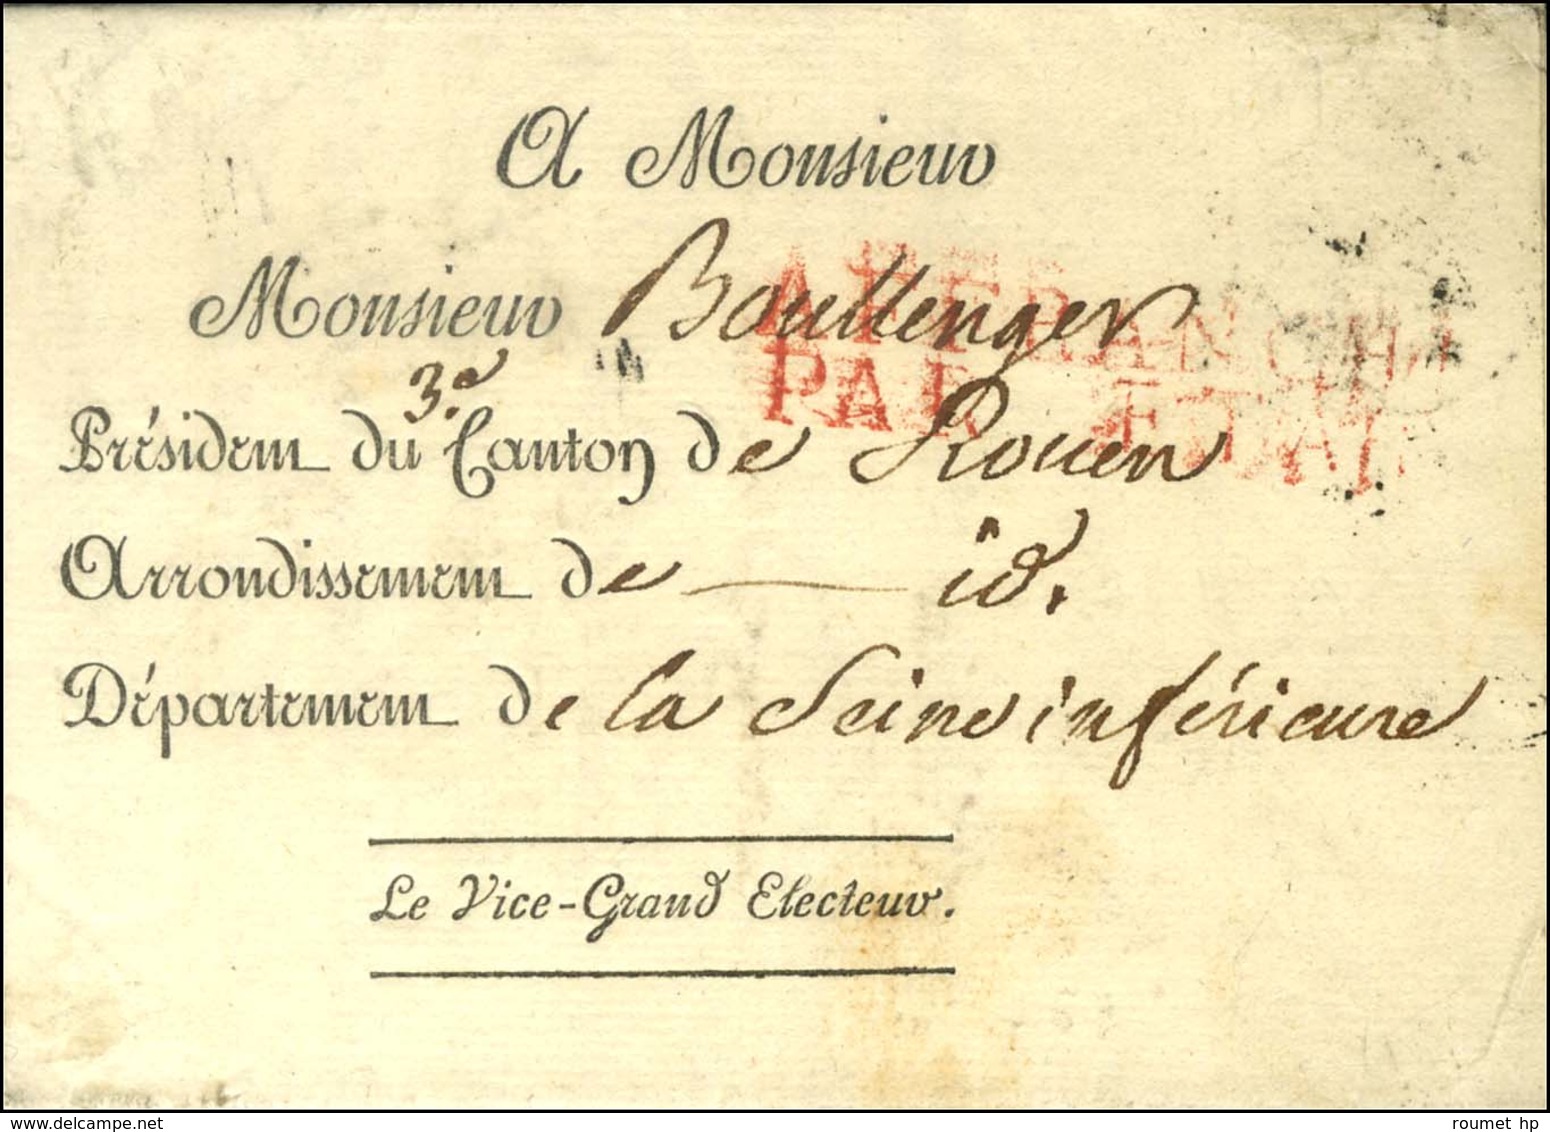 A Monsieur
Monsieur Boullenger
AFFRANCHI
PAR ETAT
3.e
Président du Canton de Rouen
Arrondissement de — id.
Département de la Seine inférieure
Le Vice-Grand Electeur.
delcampe.net
roumet hp